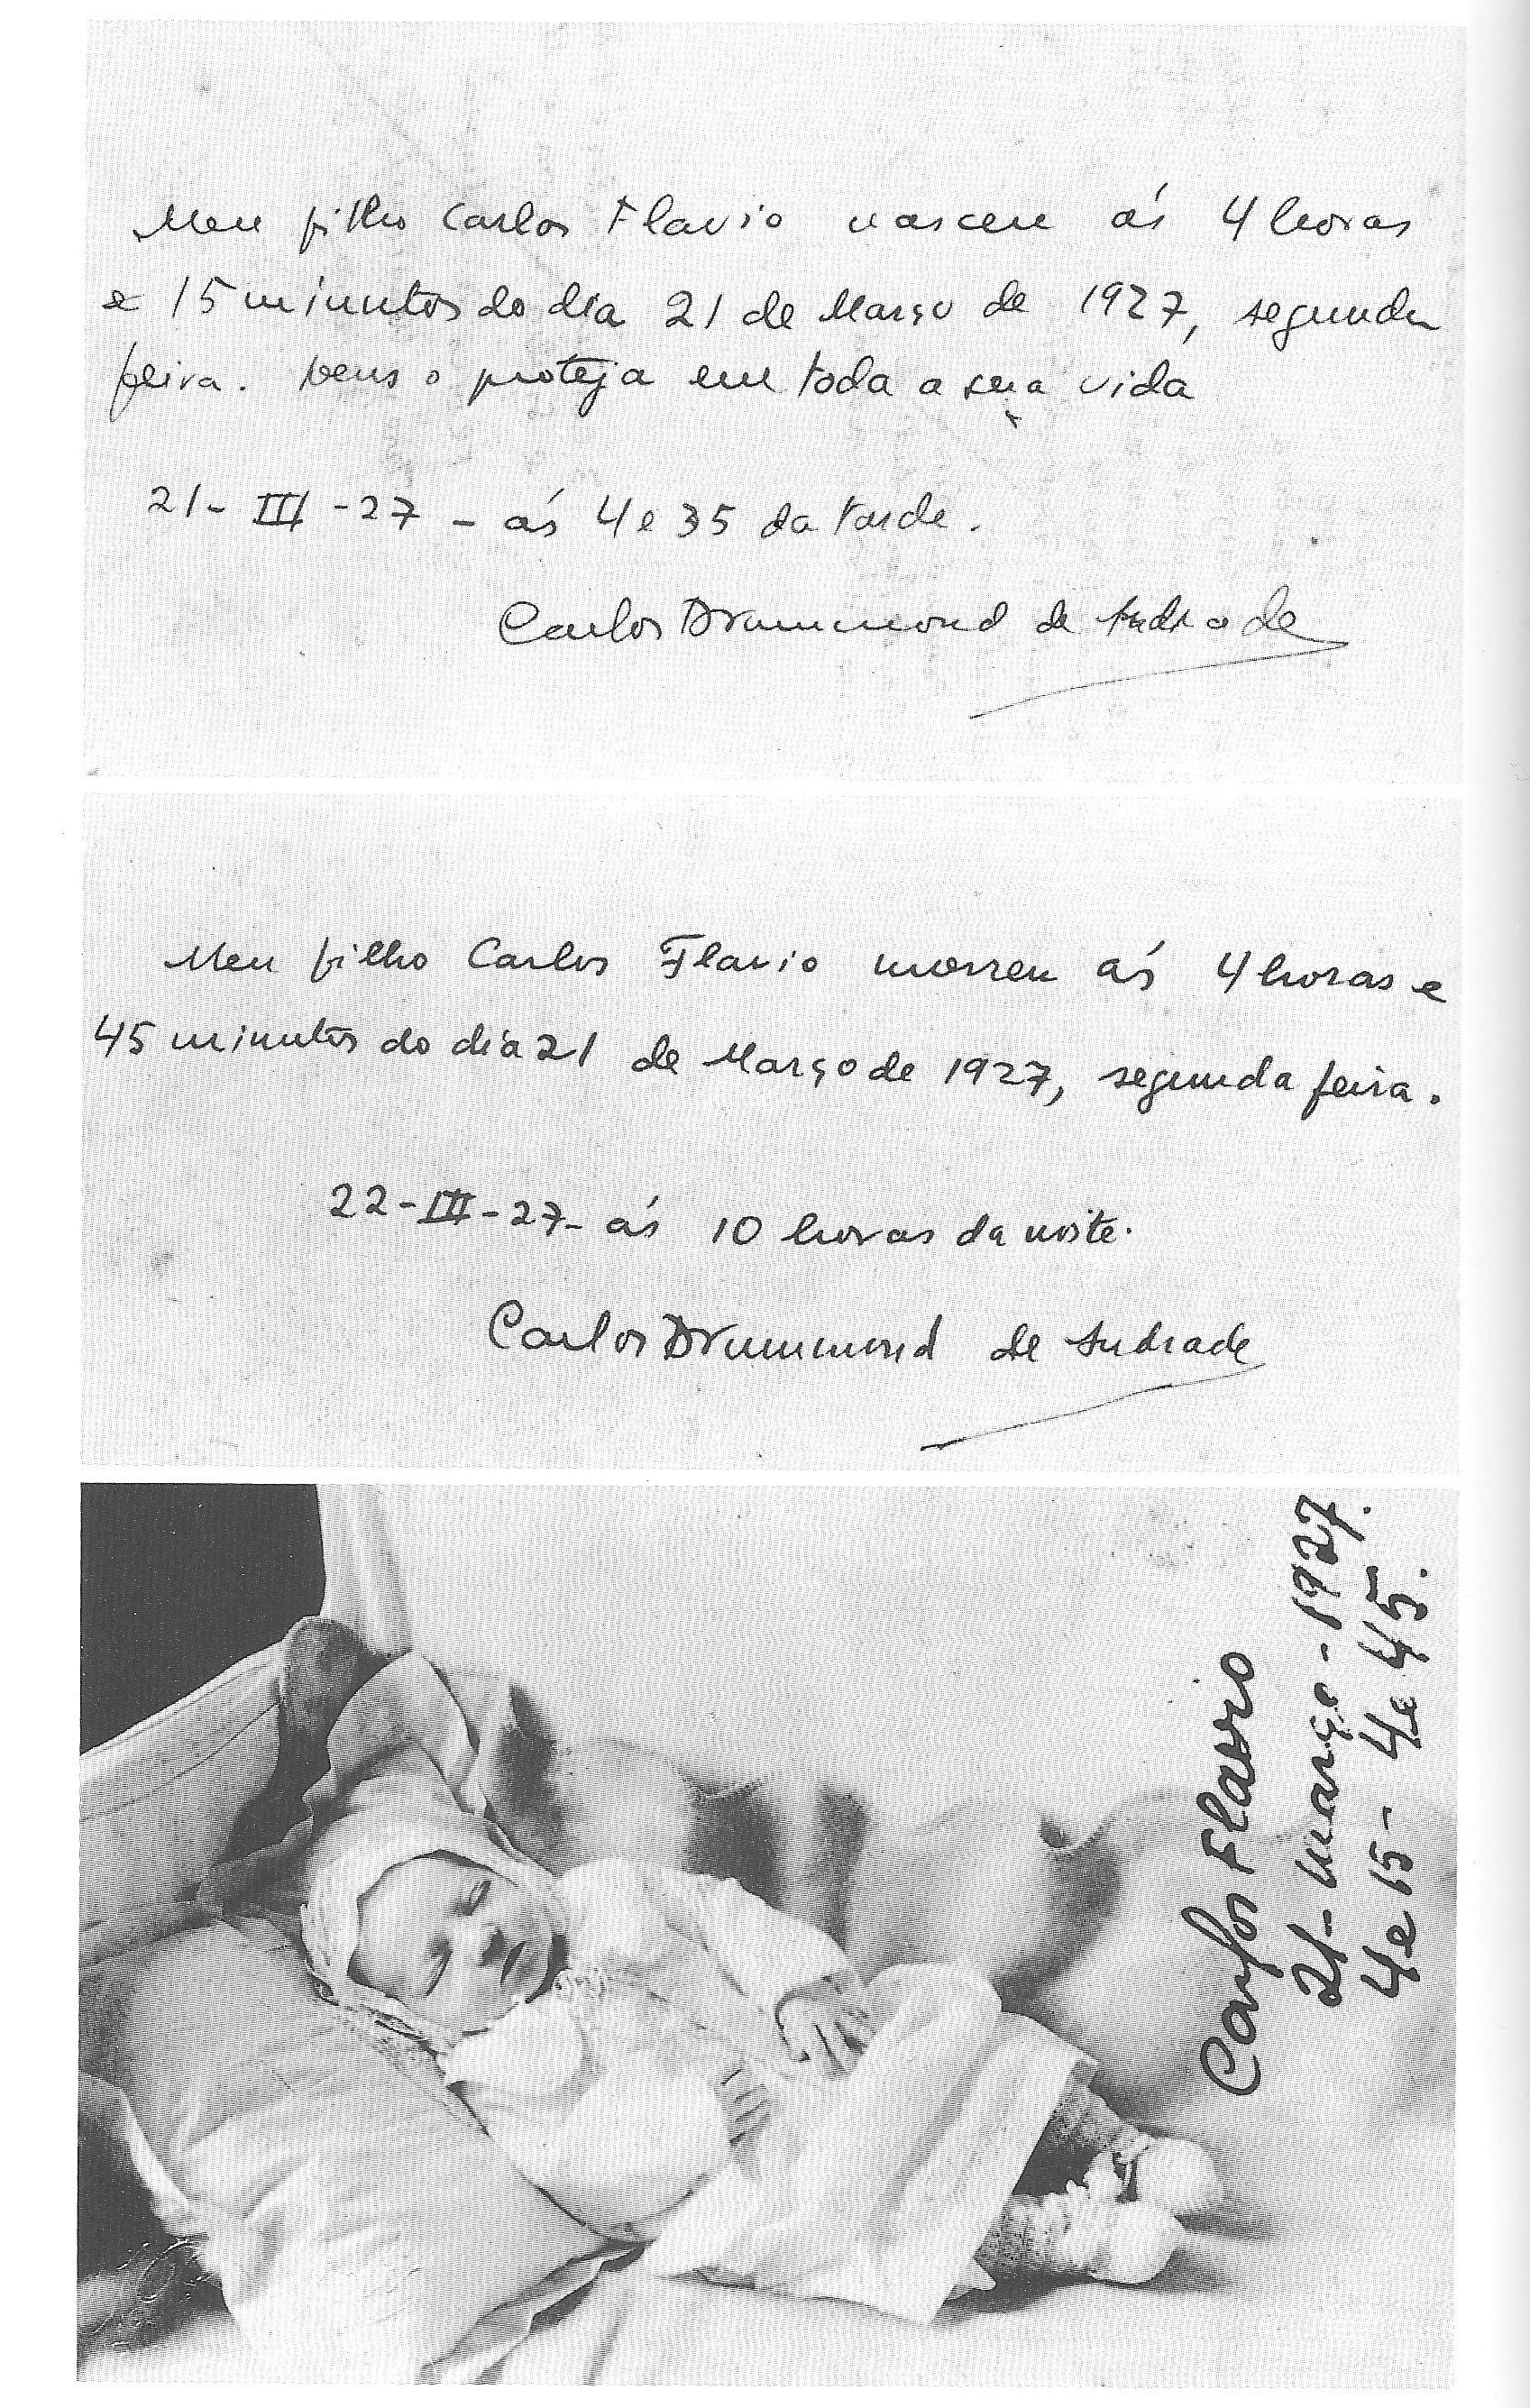 Meu filho Carlos Flavio nasceu ás 4 horas
e 15 minutos do dia 21 de Março de 1927, segunda
feira. Deus o proteja em toda a sua vida
21-III-27 - ás 4 e 35 da tarde.
Carlos Drummond de Andrade
Meu filho Carlos Flavio morreu ás 4 horas e
45 minutos do dia 21 de Março de 1927, segunda feira.
22-III-27- ás 10 horas da noite.
Carlos Drummond de Andrade
Carlos Flavio
21-março-1927.
4 e 15 - 4 e 45.